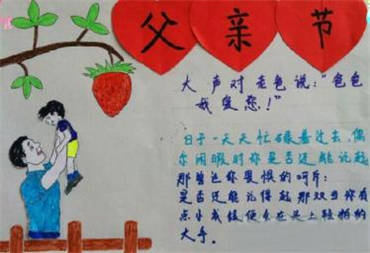 父亲节
大声对老爸说:“爸爸
我爱您!”
日子一天天忙碌着过去,偶
尔闲暇时你是否还能记起
那曾让你畏惧的呵斥;
是否还能记得起那双当你有
点小成绩便会在肩上轻拍的
大手。